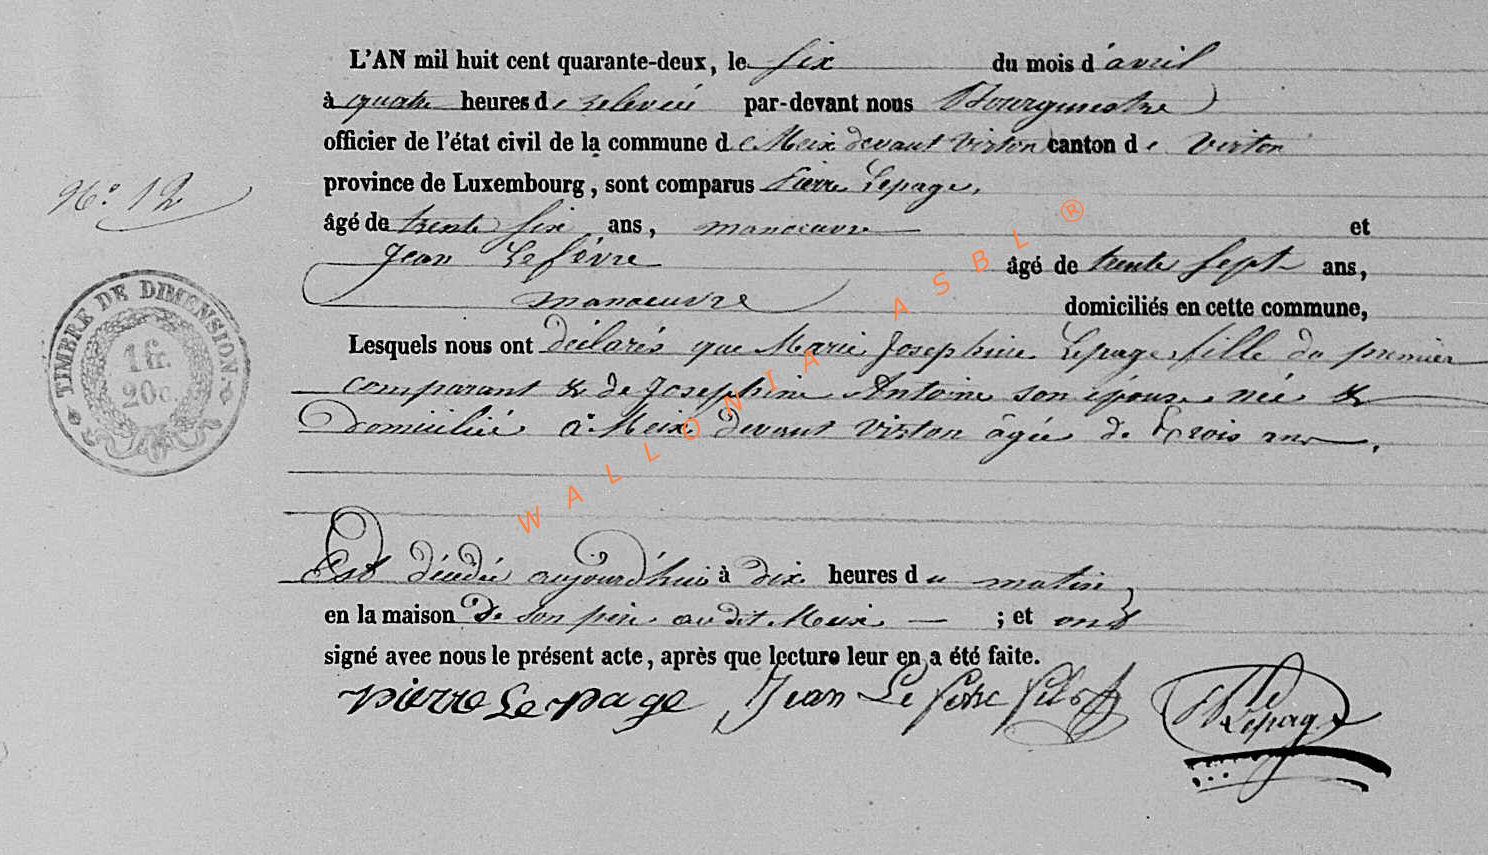 L'AN mil huit cent quarante-deux, le six du mois d'avril
à quatre heures de relevée par-devant nous Bourgmestre
officier de l'état civil de la commune de Meix devant Virton canton de Virton
province de Luxembourg, sont comparus Pierre Lepage,
N.o 12
âgé de trente six ans, manoeuvre et
Jean Lefévre âgé de trente sept ans,
manoeuvre domiciliés en cette commune,
Lesquels nous ont déclarés que Marie Josephine Lepage, fille du premier
comparant & de Josephine Antoine son épouse née &
Domiciliée à Meix devant Virton âgée de trois ans,
TIMBRE DE DIMENSION.
1 fr.
20c
WALLONIA ASBL ®
Est décédée aujourd'hui à dix heures du matin
en la maison de son père audit Meix — ; et ont
signé avec nous le présent acte, après que lecture leur en a été faite.
pierre Lepage Jean Lefevre fils
Lepage